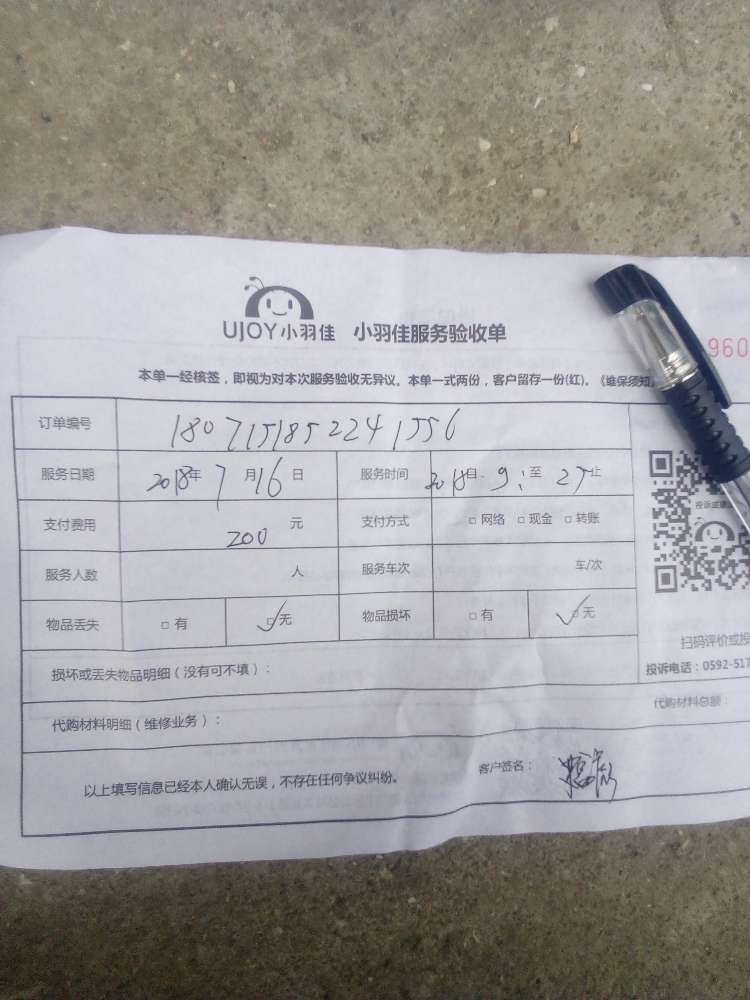 UJOY小羽佳 小羽佳服务验收单
960
本单一经核签，即视为对本次服务验收无异议。本单一式两份，客户留存一份(红)。《维保须知
订单编号 1807151852241556
服务日期 2018年 7月16日 服务时间 2018自 9: 至 27止
支付费用 200 元 支付方式 □ 网络 □ 现金 □ 转账
投诉或建
服务人数 人 服务车次 车/次
物品丢失 □ 有 ☑ 无 物品损坏 □ 有 ☑ 无
扫码评价或投
损坏或丢失物品明细（没有可不填）：
投诉电话：0592-517
代购材料明细（维修业务）：
代购材料总额：
以上填写信息已经本人确认无误，不存在任何争议纠纷。 客户签名：